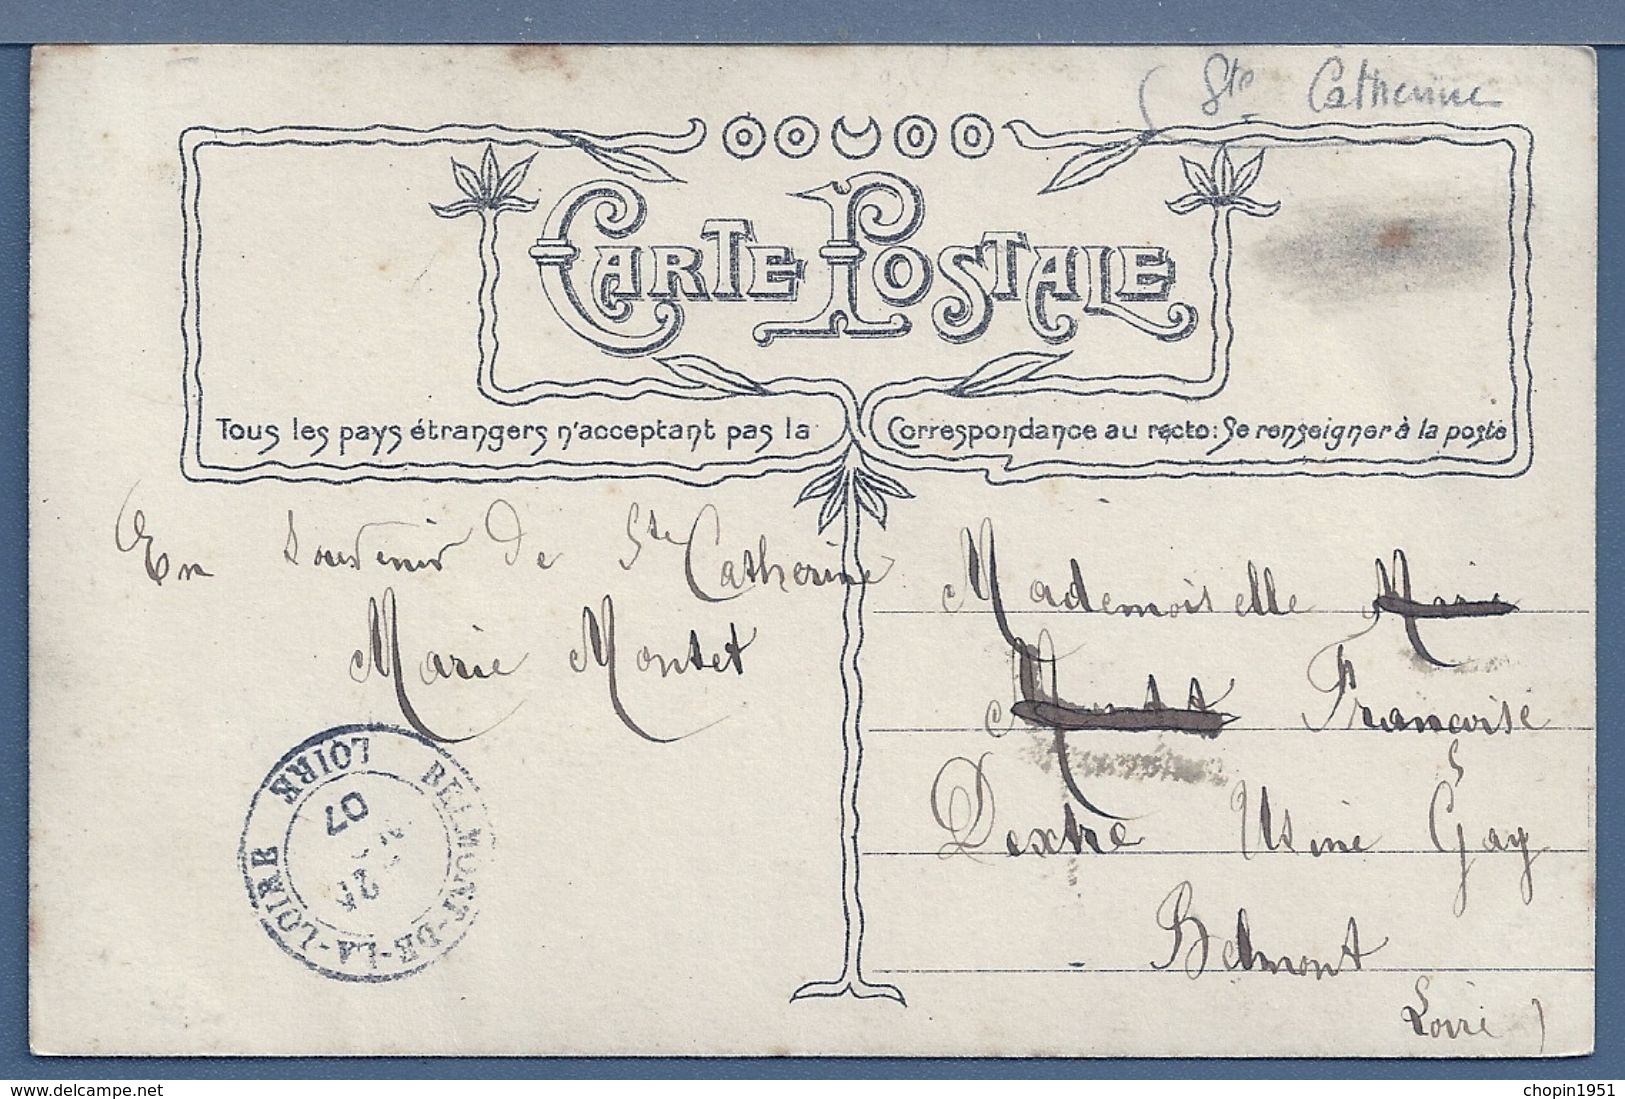 Ste Catherine
CARTE POSTALE
Tous les pays étrangers n'acceptant pas la Correspondance au recto: Se renseigner à la poste
En Souvenir de Ste Catherine
Marie Montet
Mademoiselle Marie
Montet Francoise
Dextre Usine Gay
Belmont
Loire
BELMONT-DE-LA-LOIRE
LOIRE
25
07
delcampe.net
chopin1951